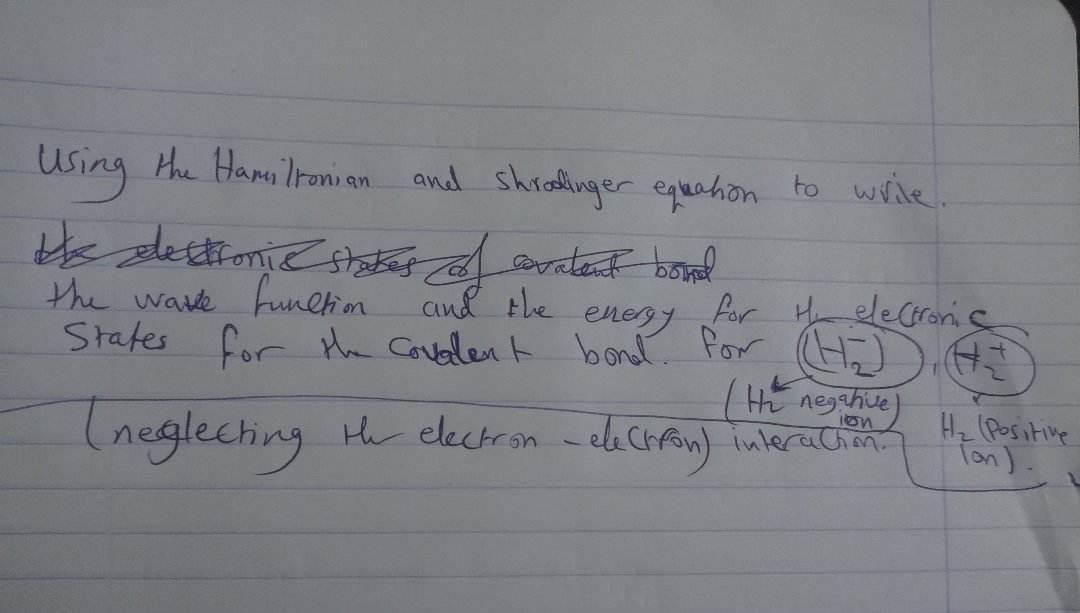 Using the Hamiltonian and Shrodinger equation to write.
the electronic states of covalent bond
the wave function and the energy for the electronic
States for the Covalent bond. for (H₂⁻), H₂⁺
(H₂ negative ion)
H₂ (positive ion).
(neglecting the electron - electron) interaction.